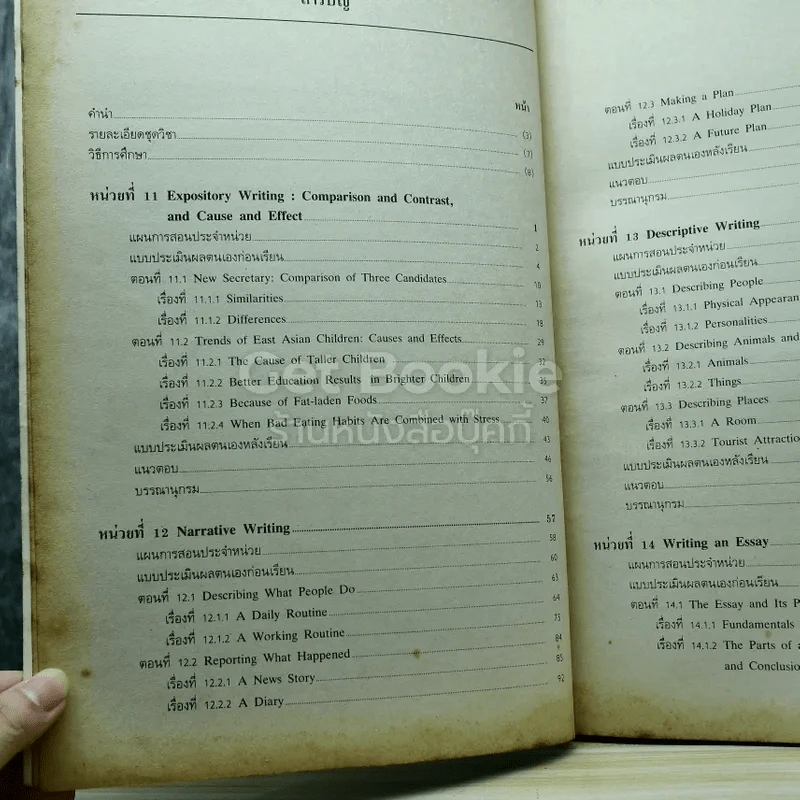 สารบัญ
หน้า
คำนำ (3)
รายละเอียดชุดวิชา (7)
วิธีการศึกษา (8)
หน่วยที่ 11 Expository Writing : Comparison and Contrast,
and Cause and Effect 1
แผนการสอนประจำหน่วย 2
แบบประเมินผลตนเองก่อนเรียน 4
ตอนที่ 11.1 New Secretary: Comparison of Three Candidates 10
เรื่องที่ 11.1.1 Similarities 13
เรื่องที่ 11.1.2 Differences 18
ตอนที่ 11.2 Trends of East Asian Children: Causes and Effects 29
เรื่องที่ 11.2.1 The Cause of Taller Children 32
เรื่องที่ 11.2.2 Better Education Results in Brighter Children 35
เรื่องที่ 11.2.3 Because of Fat-laden Foods 37
เรื่องที่ 11.2.4 When Bad Eating Habits Are Combined with Stress 40
แบบประเมินผลตนเองหลังเรียน 43
แนวตอบ 46
บรรณานุกรม 56
หน่วยที่ 12 Narrative Writing 57
แผนการสอนประจำหน่วย 58
แบบประเมินผลตนเองก่อนเรียน 60
ตอนที่ 12.1 Describing What People Do 63
เรื่องที่ 12.1.1 A Daily Routine 64
เรื่องที่ 12.1.2 A Working Routine 75
ตอนที่ 12.2 Reporting What Happened 84
เรื่องที่ 12.2.1 A News Story 85
เรื่องที่ 12.2.2 A Diary 92
ตอนที่ 12.3 Making a Plan
เรื่องที่ 12.3.1 A Holiday Plan
เรื่องที่ 12.3.2 A Future Plan
แบบประเมินผลตนเองหลังเรียน
แนวตอบ
บรรณานุกรม
หน่วยที่ 13 Descriptive Writing
แผนการสอนประจำหน่วย
แบบประเมินผลตนเองก่อนเรียน
ตอนที่ 13.1 Describing People
เรื่องที่ 13.1.1 Physical Appearan
เรื่องที่ 13.1.2 Personalities
ตอนที่ 13.2 Describing Animals and
เรื่องที่ 13.2.1 Animals
เรื่องที่ 13.2.2 Things
ตอนที่ 13.3 Describing Places
เรื่องที่ 13.3.1 A Room
เรื่องที่ 13.3.2 Tourist Attractio
แบบประเมินผลตนเองหลังเรียน
แนวตอบ
บรรณานุกรม
หน่วยที่ 14 Writing an Essay
แผนการสอนประจำหน่วย
แบบประเมินผลตนเองก่อนเรียน
ตอนที่ 14.1 The Essay and Its P
เรื่องที่ 14.1.1 Fundamentals
เรื่องที่ 14.1.2 The Parts of a
and Conclusio
Get Bookie
ร้านหนังสือบุ๊คกี้